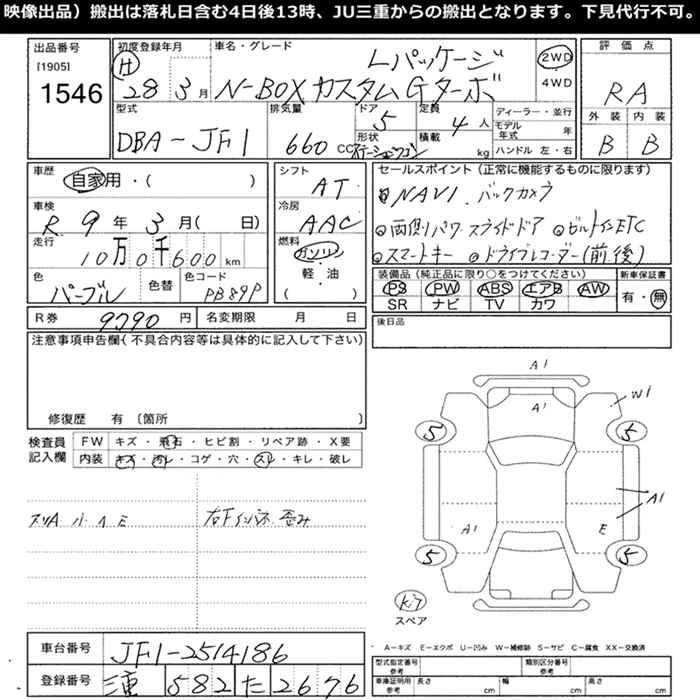 映像出品）搬出は落札日含む4日後13時、JU三重からの搬出となります。下見代行不可。
出品番号
[1905]
1546
初度登録年月
H 28 3月
車名・グレード
Lパッケージ
N-BOXカスタムGターボ
2WD
4WD
評価点
RA
外装 内装
B B
型式
DBA-JF1
排気量
660 CC
ドア 5
形状 ステーションワゴン
定員 4人
積載 kg
ディーラー・並行
モデル年式 年
ハンドル 左・右
車歴
自家用・( )
車検
R 9年 3月( 日)
走行
10万0千600km
色
パープル
色替
色コード
PB89P
シフト
AT
冷房
AAC
燃料
ガソリン
軽・油
( )
セールスポイント（正常に機能するものに限ります）
◎NAVI. バックカメラ
◎両側パワースライドドア ◎ビルトインETC
◎スマートキー ◎ドライブレコーダー(前,後)
装備品（純正品に限り○をつけてください）
PS PW ABS エアB AW
SR ナビ TV カワ
新車保証書
有・無
R券 9790円
名変期限 月 日
後日品
注意事項申告欄（不具合内容等は具体的に記入して下さい）
修復歴 有〔箇所 〕
検査員記入欄
FW キズ・飛石・ヒビ割・リペア跡・X要
内装 キズ・汚レ・コゲ・穴・スレ・キレ・破レ
右Fインパネ 歪み
A1
A1
W1
5
5
A1
A1
E
5
5
スペア
車台番号 JF1-2514186
登録番号 三重 582 た 2676
A－キズ E－エクボ U－凹み W－補修跡 S－サビ C－腐食 XX－交換済
型式指定番号 参考
類別区分番号 参考
車庫証明用 参考 長さ cm 幅 cm 高さ cm